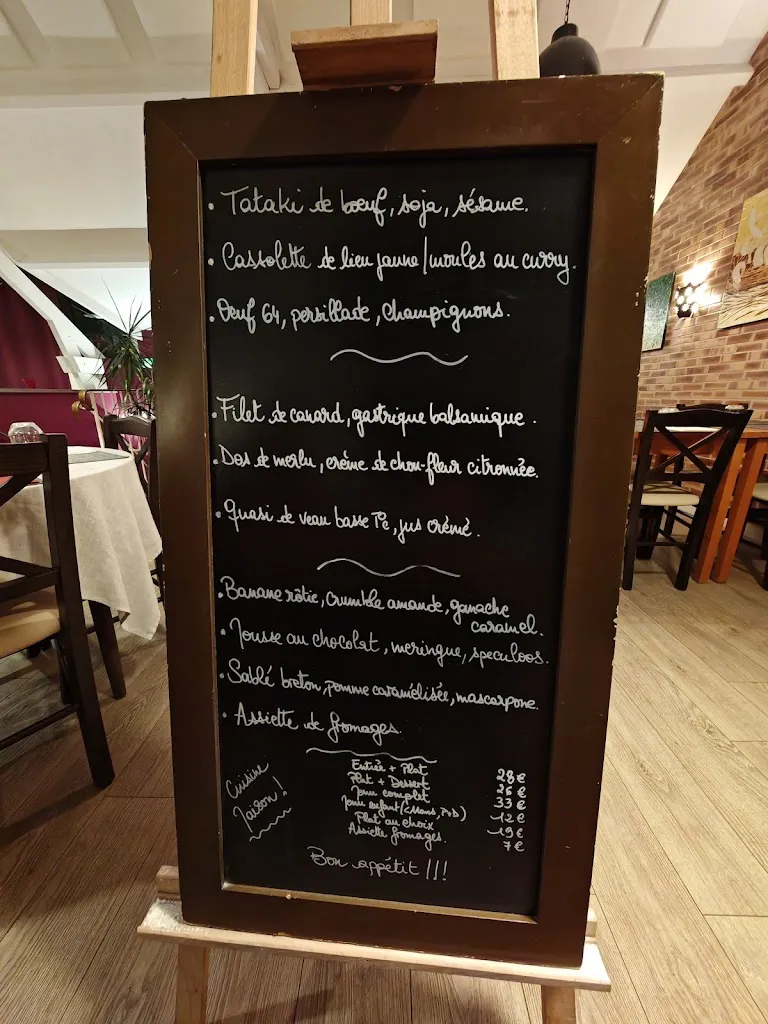 . Tataki de boeuf, soja, sésame.
. Cassolette de lieu jaune/moules au curry.
. Oeuf 64, persillade, champignons.
. Filet de canard, gastrique balsamique.
. Dos de merlu, crème de chou-fleur citronnée.
. Quasi de veau basse T°c, jus crémé.
. Banane rôtie, crumble amande, ganache
caramel.
. Mousse au chocolat, meringue, speculoos.
. Sablé breton, pomme caramélisée, mascarpone.
. Assiette de fromages.
Cuisine
Maison!
Entrée + Plat 28€
Plat + Dessert 26€
Menu complet 33€
Menu enfant (<11ans, P+D) 12€
Plat au choix 19€
Assiette fromages. 7€
Bon appétit !!!